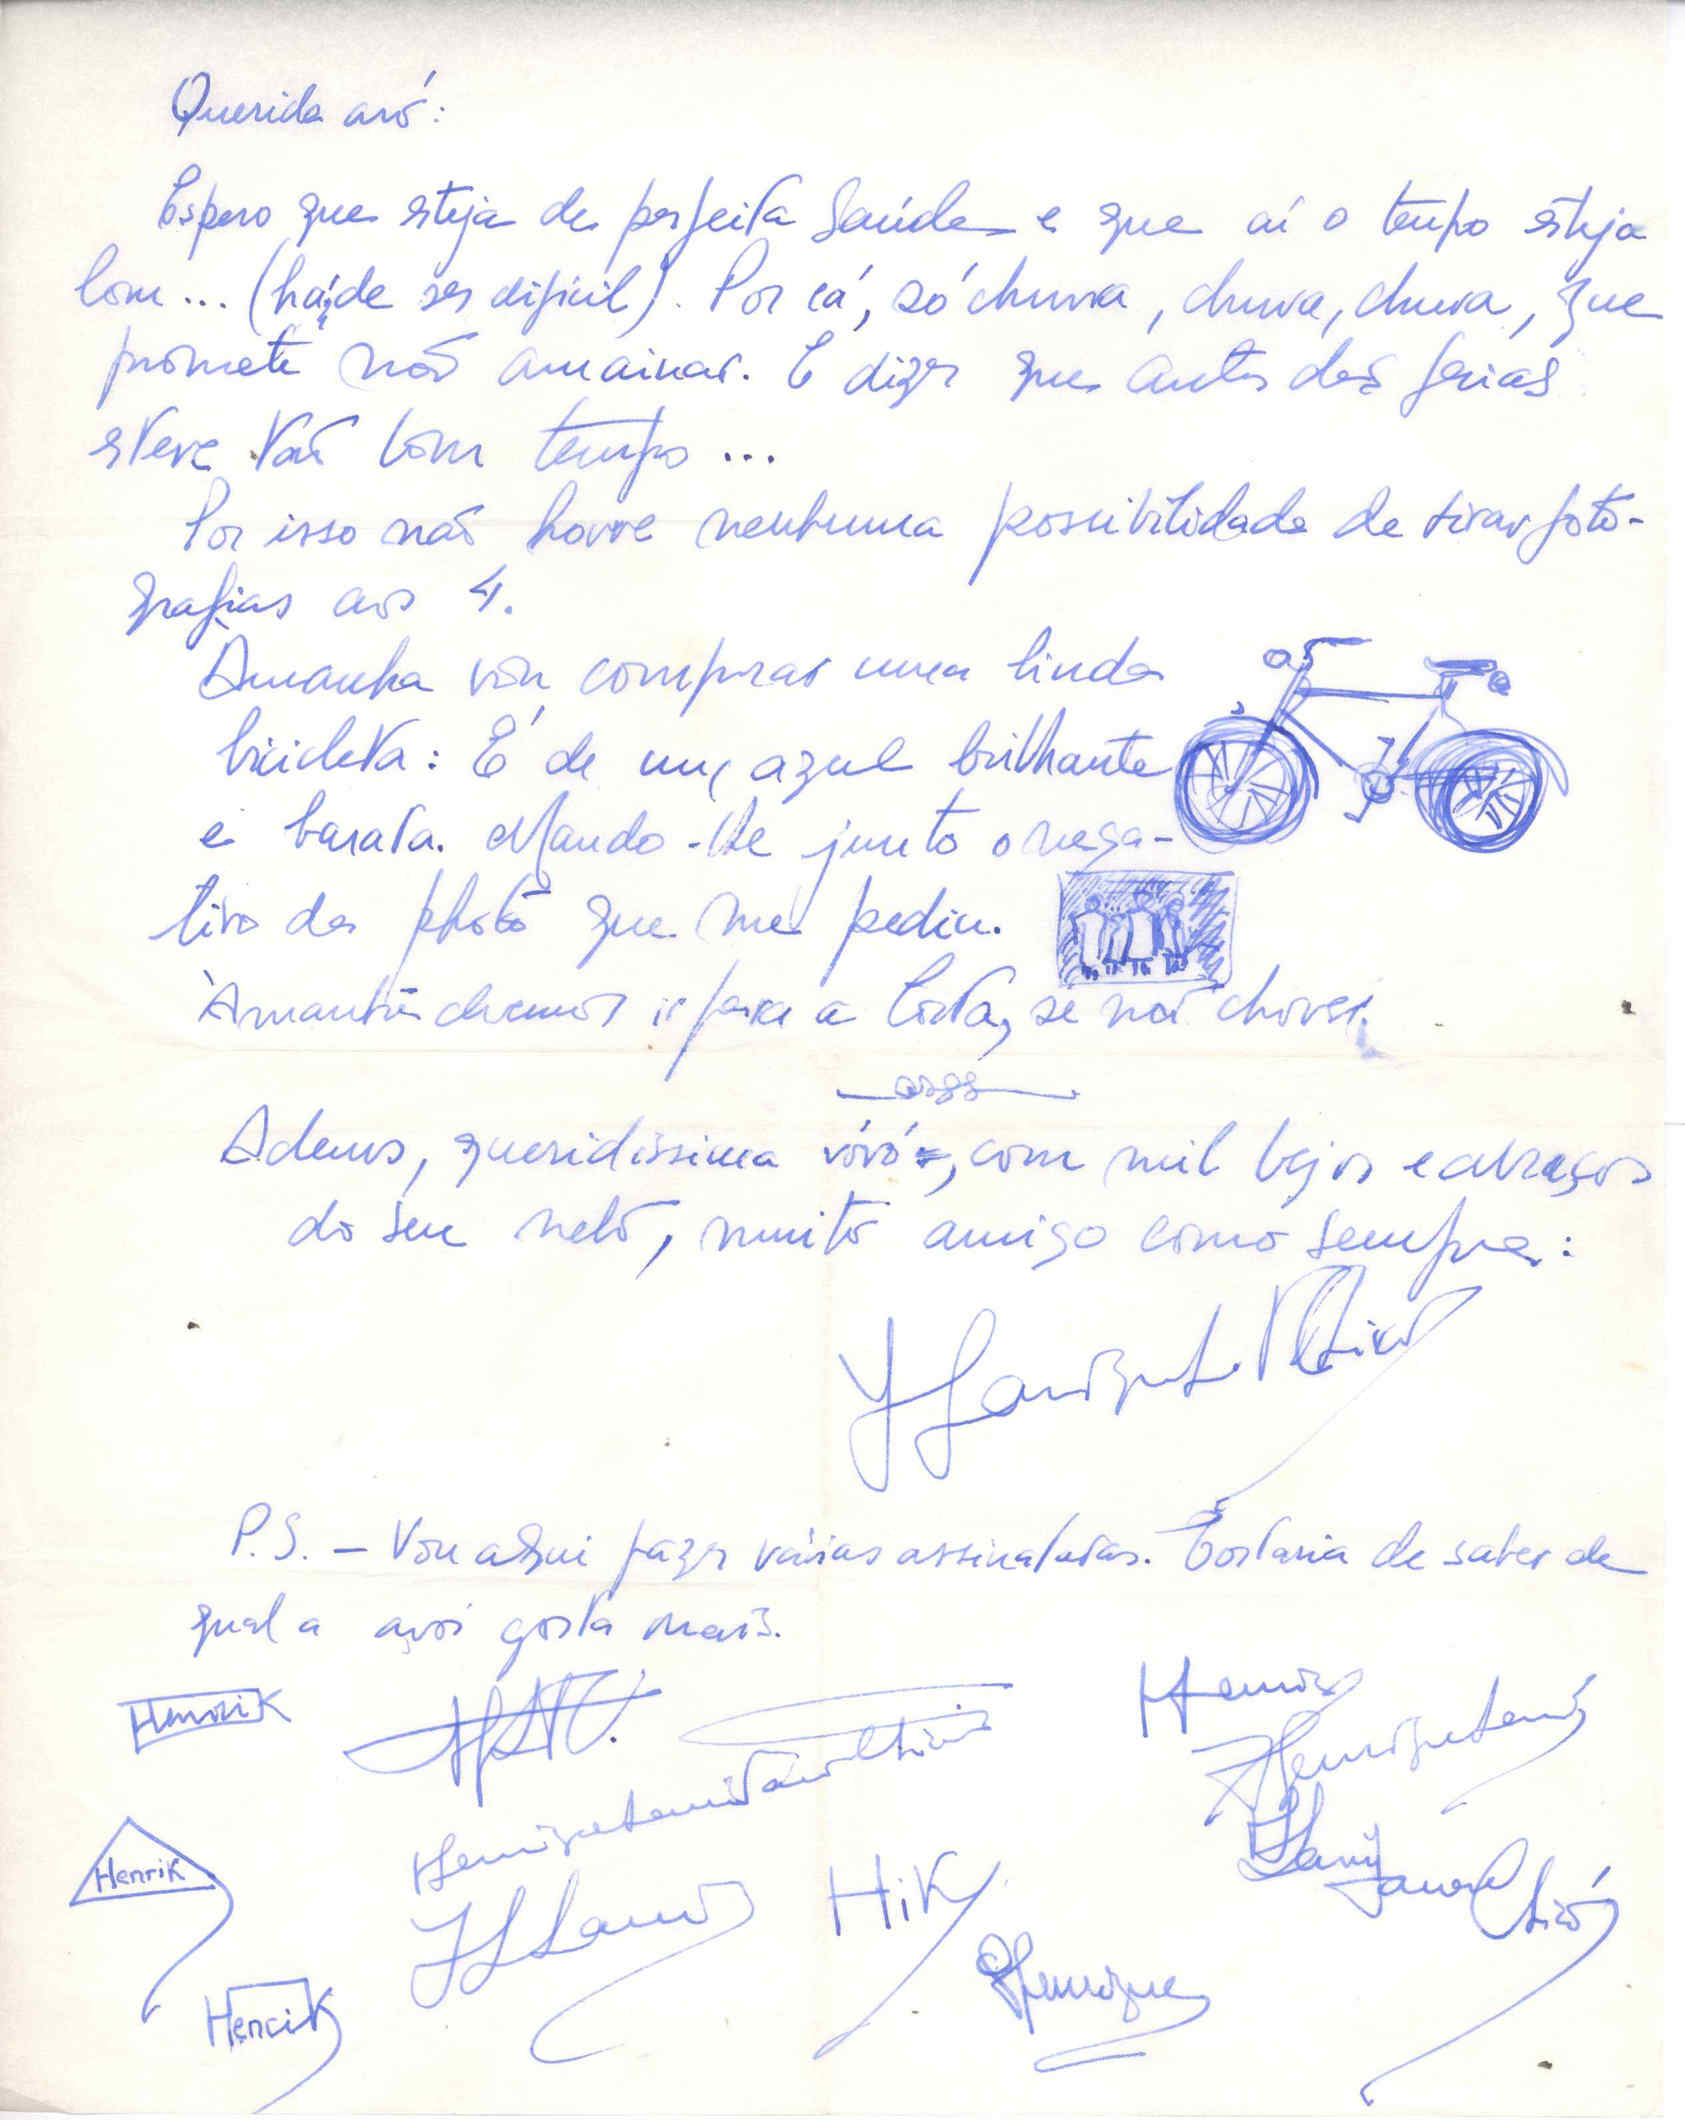 Querida avó:
Espero que esteja de perfeita saúde e que aí o tempo esteja
bom... (há de ser difícil). Por cá, só chuva, chuva, chuva, que
promete não amainar. E dizer que antes das férias
esteve tão bom tempo...
Por isso não houve nenhuma possibilidade de tirar foto-
grafias aos 4.
Amanhã vou comprar uma linda
bicicleta: É de um azul brilhante
e barata. Mando-lhe junto o nega-
tivo da photo que me pediu.
Amanhã devemos ir para a Costa, se não chover.
Adeus, queridíssima vóvó, com mil bejos e abraços
do seu neto, muito amigo como sempre:
P.S. - Vou aqui fazer várias assinaturas. Gostaria de saber de
qual a avó gosta mais.
Henrik
Henrik
Hik
Henrique
Henrik